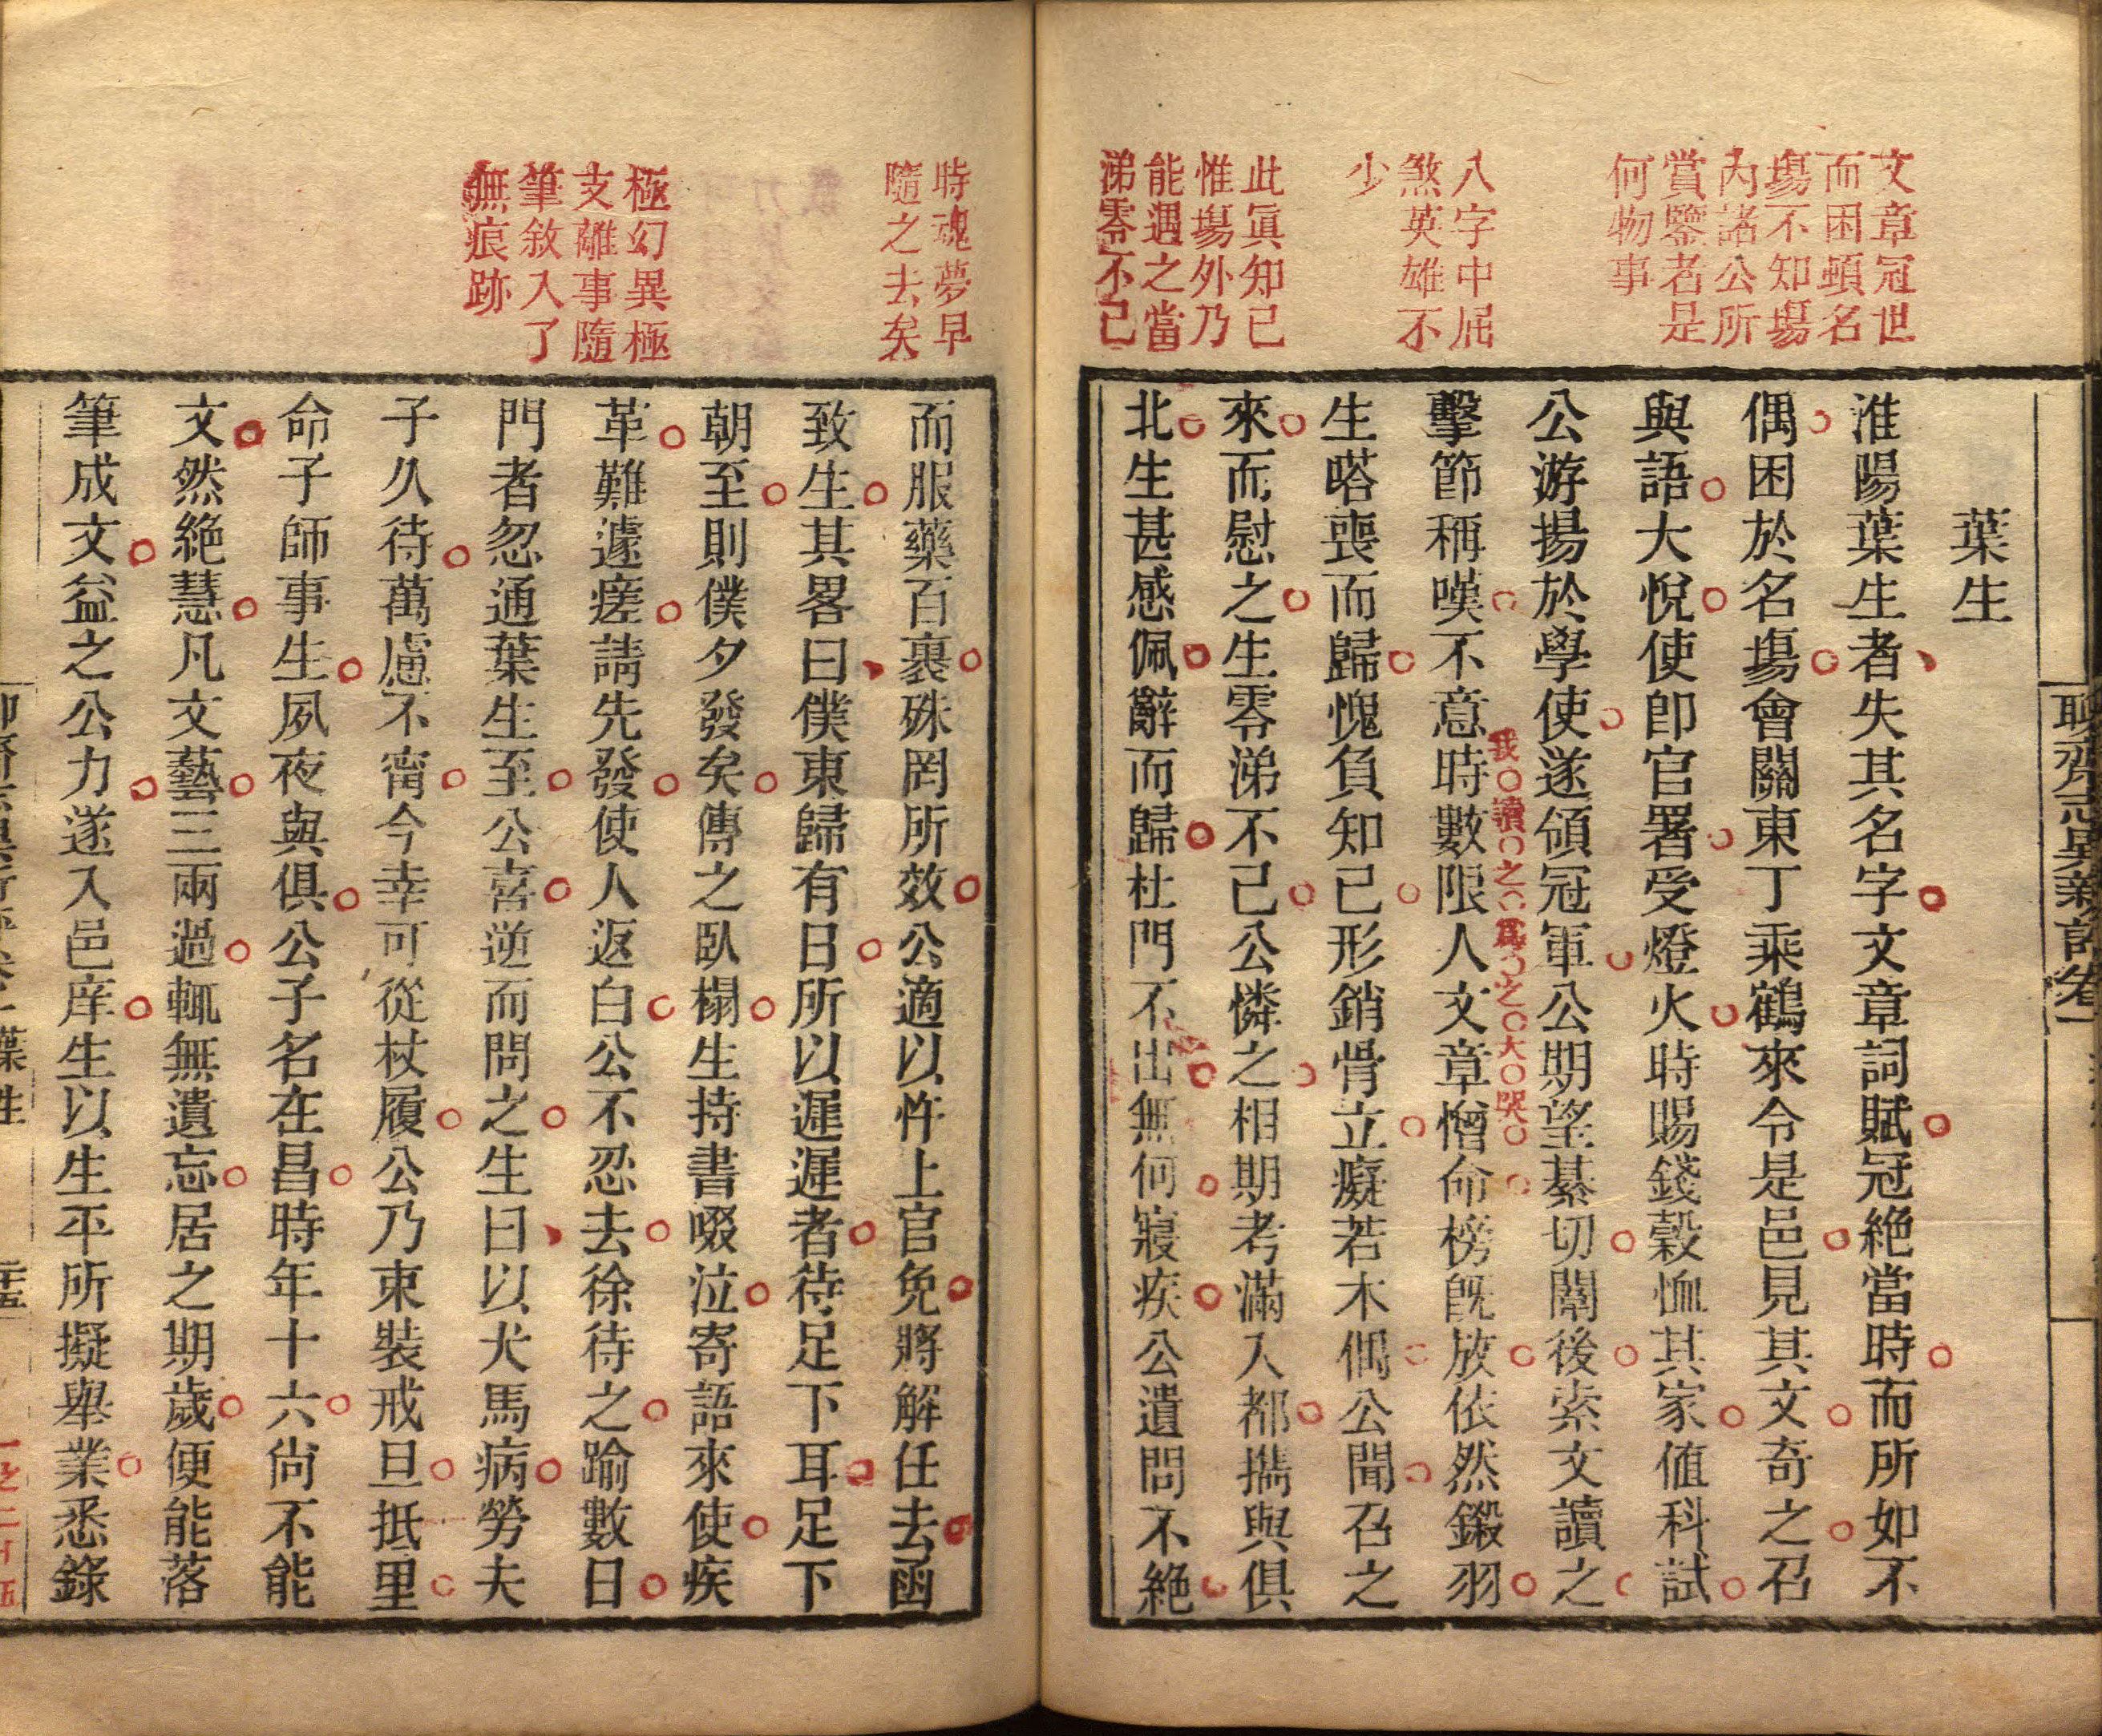 聊齋志異新評卷一
文章冠世
而困頓名
塲不知塲
內諸公所
賞鑒者是
何物事
八字中屈
煞英雄不
少
此眞知已
惟塲外乃
能遇之當
涕零不已
葉生
淮陽葉生者失其名字文章詞賦冠絶當時而所如不
偶困於名塲會關東丁乘鶴來令是邑見其文奇之召
與語大悅使卽官署受燈火時賜錢穀恤其家値科試
公游揚於學使遂領冠軍公期望綦切闈後索文讀之
擊節稱嘆不意時數限人文章憎命榜旣放依然鎩羽
我讀之爲之大哭
生嗒喪而歸愧負知已形銷骨立癡若木偶公聞召之
來而慰之生零涕不已公憐之相期考滿入都攜與俱
北生甚感佩辭而歸杜門不出無何寢疾公遺問不絶
時魂夢早
隨之去矣
極幻異極
支離事隨
筆敘入了
無痕跡
而服藥百裹殊罔所效公適以忤上官免將解任去函
致生其畧曰僕東歸有日所以遲遲者待足下耳足下
朝至則僕夕發矣傳之臥榻生持書啜泣寄語來使疾
革難遽瘥請先發使人返白公不忍去徐待之踰數日
門者忽通葉生至公喜逆而問之生曰以犬馬病勞夫
子久待萬慮不甯今幸可從杖履公乃束裝戒旦抵里
命子師事生夙夜與俱公子名在昌時年十六尙不能
文然絶慧凡文藝三兩過輒無遺忘居之期歲便能落
筆成文益之公力遂入邑庠生以生平所擬舉業悉錄